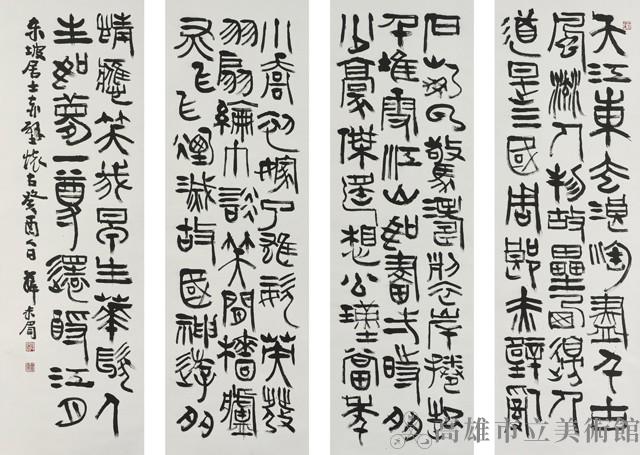 大江東去浪淘盡千古
風流人物故壘西邊人
道是三國周郎赤壁亂
石崩雲驚濤裂岸捲起
千堆雪江山如畫一時多
少豪傑遙想公瑾當年
小喬初嫁了雄姿英發
羽扇綸巾談笑間檣艣
灰飛煙滅故國神遊多
情應笑我早生華髮人
生如夢一尊還酹江月
東坡居士赤壁懷古癸酉
高雄市立美術館